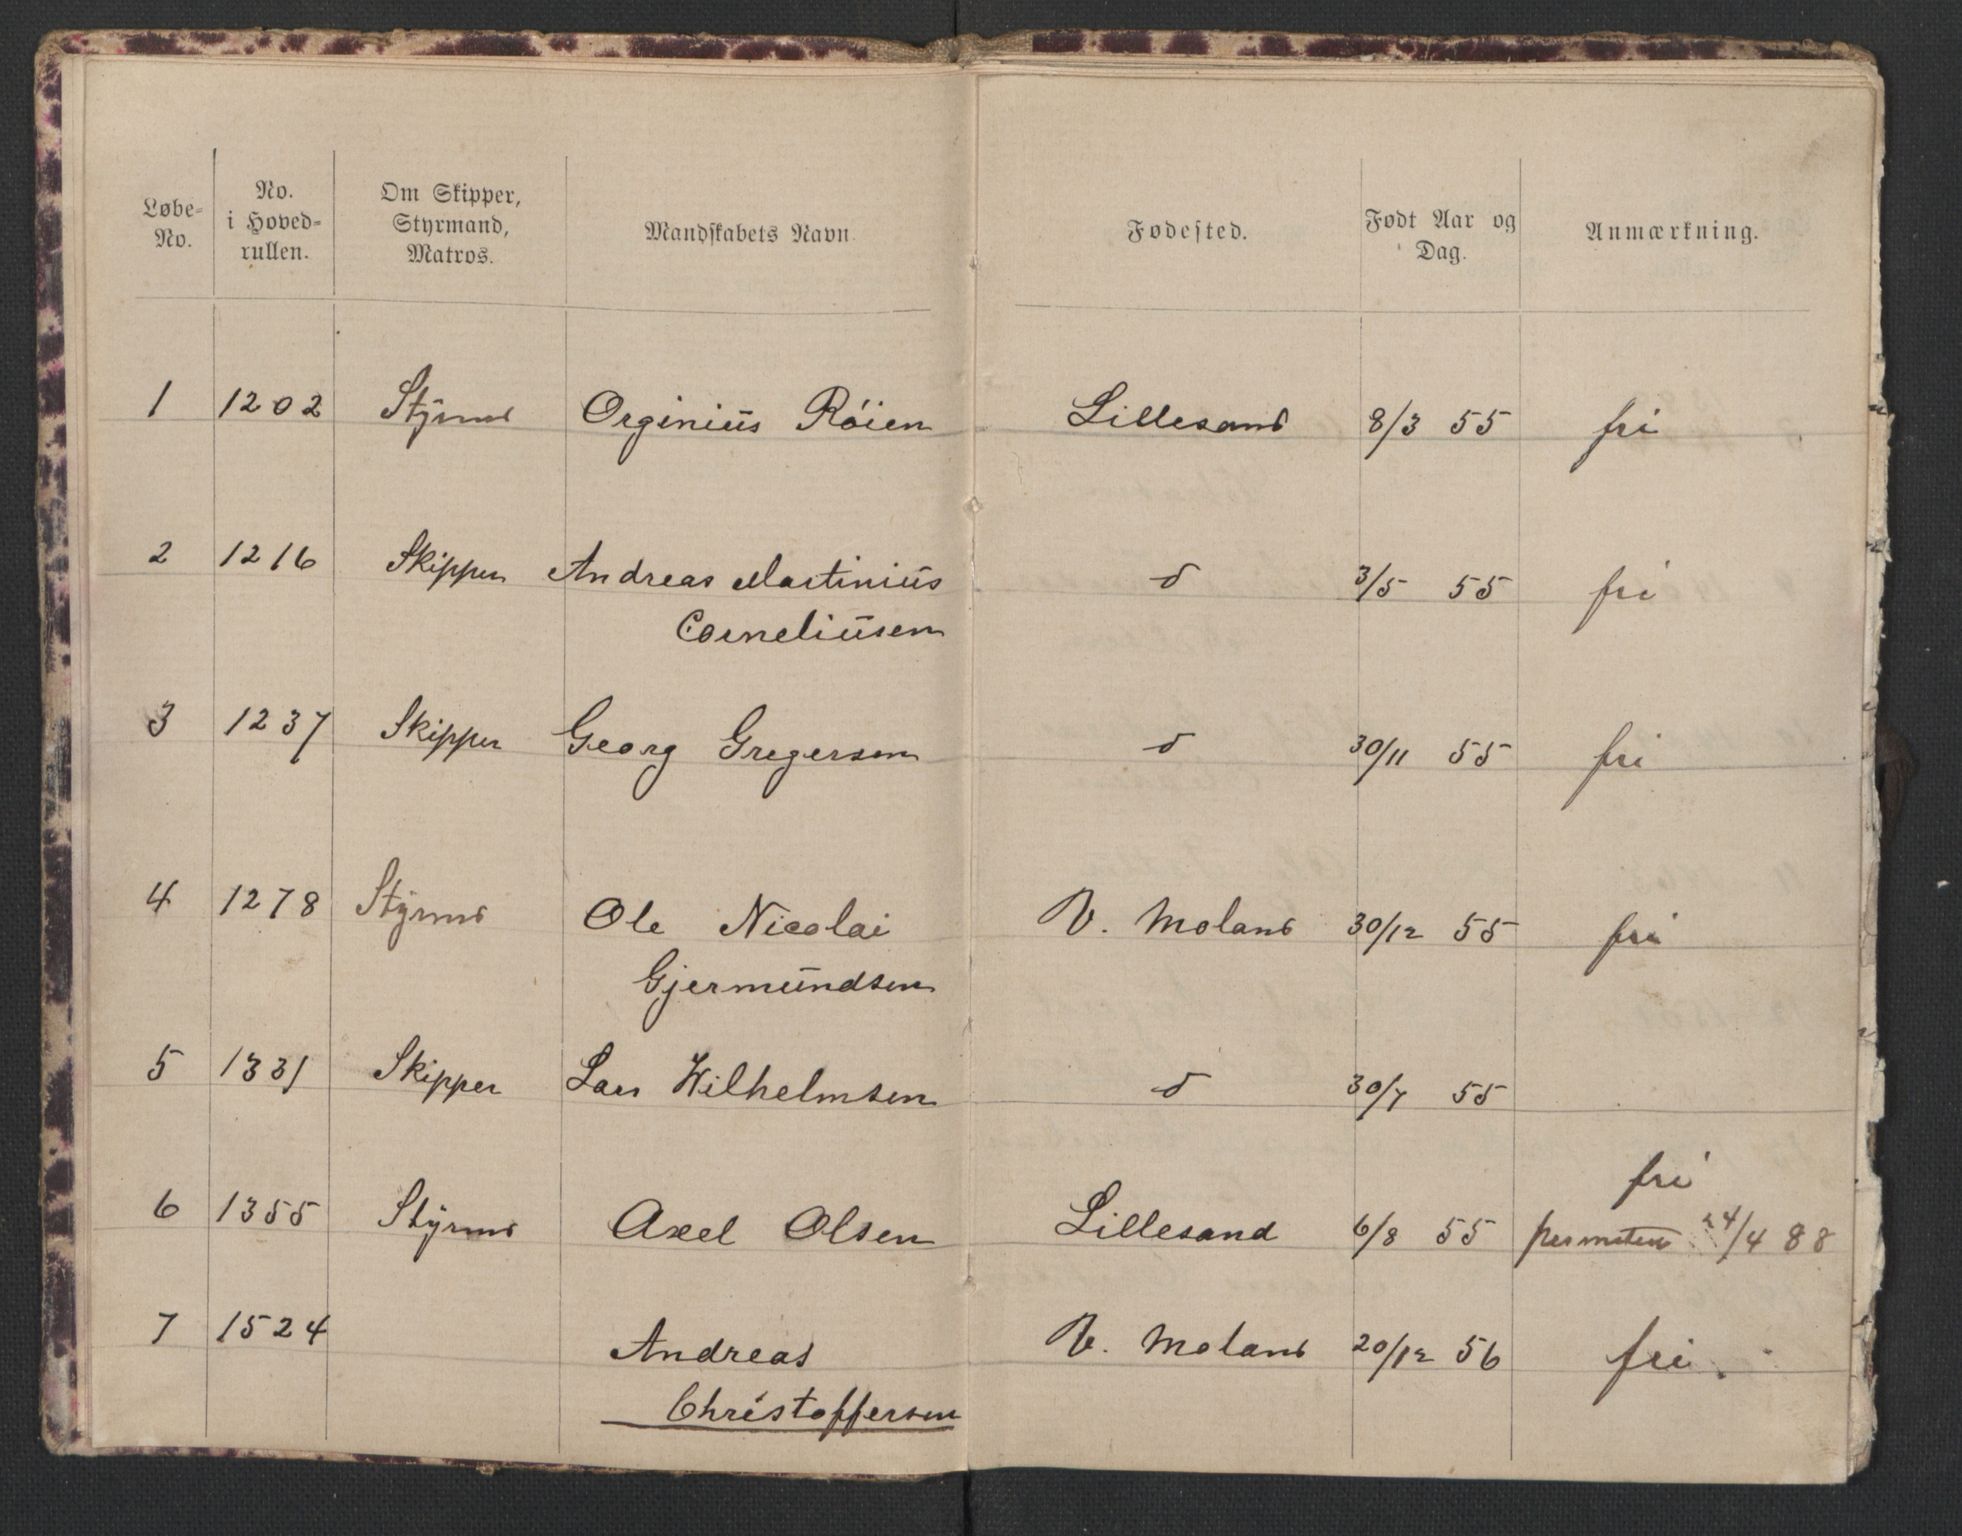 Løbe-No. No. i Hoved-rullen. Om Skipper, Styrmand, Matros. Mandskabets Navn. Fødested. Født Aar og Dag. Anmærkning.
1 1202 Styrmd Orginius Röien Lillesand 8/3 55 fri
2 1216 Skipper Andreas Martinius d 3/5 55 fri
Corneliusen
3 1237 Skipper Georg Gregersen d 30/11 55 fri
4 1278 Styrmd Ole Nicolai V. Moland 30/12 55 fri
Gjermundsen
5 1331 Skipper Lars Wilhelmsen d 30/7 55
fri
6 1355 Styrmd Axel Olsen Lillesand 6/8 55 24/4 88
7 1524 Andreas V. Moland 20/12 56 fri.
Christoffersen